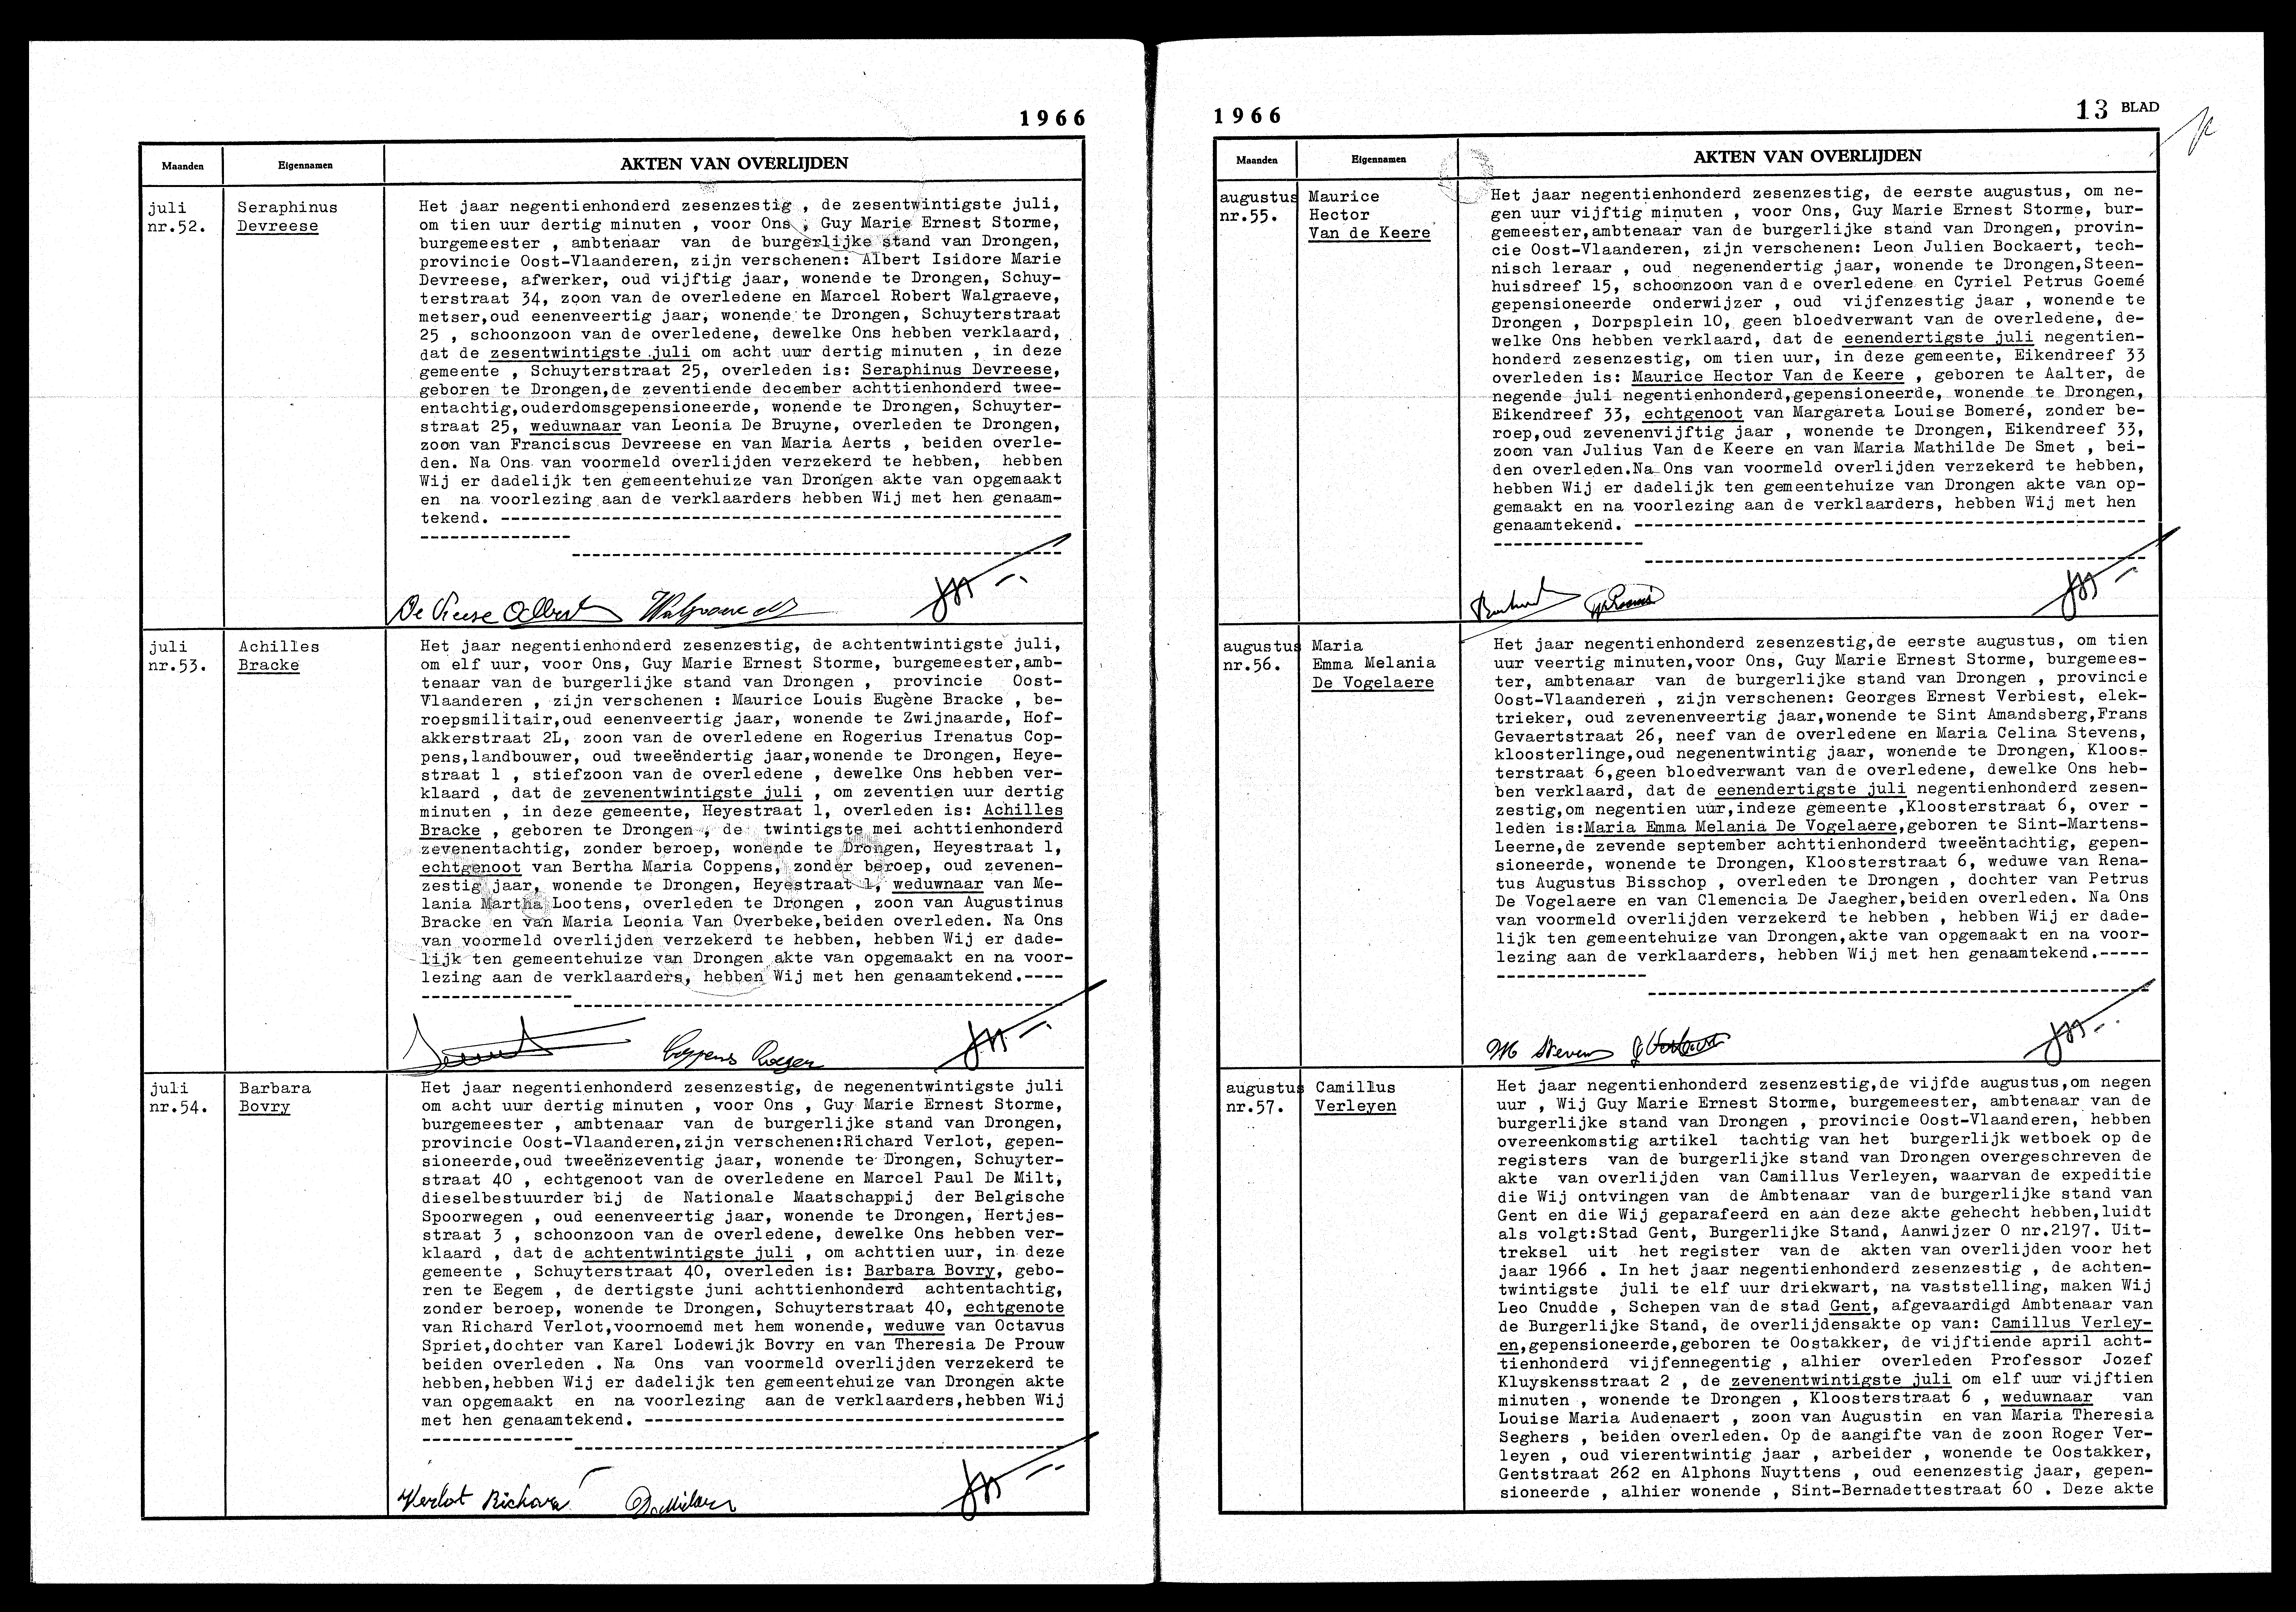 1966
Maanden Eigennamen AKTEN VAN OVERLIJDEN
juli
nr.52.
Seraphinus
Devreese
Het jaar negentienhonderd zesenzestig , de zesentwintigste juli,
om tien uur dertig minuten , voor Ons , Guy Marie Ernest Storme,
burgemeester , ambtenaar van de burgerlijke stand van Drongen,
provincie Oost-Vlaanderen, zijn verschenen: Albert Isidore Marie
Devreese, afwerker, oud vijftig jaar, wonende te Drongen, Schuy-
terstraat 34, zoon van de overledene en Marcel Robert Walgraeve,
metser,oud eenenveertig jaar, wonende te Drongen, Schuyterstraat
25 , schoonzoon van de overledene, dewelke Ons hebben verklaard,
dat de zesentwintigste juli om acht uur dertig minuten , in deze
gemeente , Schuyterstraat 25, overleden is: Seraphinus Devreese,
geboren te Drongen,de zeventiende december achttienhonderd twee-
entachtig,ouderdomsgepensioneerde, wonende te Drongen, Schuyter-
straat 25, weduwnaar van Leonia De Bruyne, overleden te Drongen,
zoon van Franciscus Devreese en van Maria Aerts , beiden overle-
den. Na Ons van voormeld overlijden verzekerd te hebben, hebben
Wij er dadelijk ten gemeentehuize van Drongen akte van opgemaakt
en na voorlezing aan de verklaarders hebben Wij met hen genaam-
tekend.
De Vreese Albert Walgraeve
juli
nr.53.
Achilles
Bracke
Het jaar negentienhonderd zesenzestig, de achtentwintigste juli,
om elf uur, voor Ons, Guy Marie Ernest Storme, burgemeester,amb-
tenaar van de burgerlijke stand van Drongen , provincie Oost-
Vlaanderen , zijn verschenen : Maurice Louis Eugène Bracke , be-
roepsmilitair,oud eenenveertig jaar, wonende te Zwijnaarde, Hof-
akkerstraat 2L, zoon van de overledene en Rogerius Irenatus Cop-
pens,landbouwer, oud tweeëndertig jaar,wonende te Drongen, Heye-
straat 1 , stiefzoon van de overledene , dewelke Ons hebben ver-
klaard , dat de zevenentwintigste juli , om zeventien uur dertig
minuten , in deze gemeente, Heyestraat 1, overleden is: Achilles
Bracke , geboren te Drongen , de twintigste mei achttienhonderd
zevenentachtig, zonder beroep, wonende te Drongen, Heyestraat 1,
echtgenoot van Bertha Maria Coppens, zonder beroep, oud zevenen-
zestig jaar, wonende te Drongen, Heyestraat 1, weduwnaar van Me-
lania Martha Lootens, overleden te Drongen , zoon van Augustinus
Bracke en van Maria Leonia Van Overbeke,beiden overleden. Na Ons
van voormeld overlijden verzekerd te hebben, hebben Wij er dade-
lijk ten gemeentehuize van Drongen akte van opgemaakt en na voor-
lezing aan de verklaarders, hebben Wij met hen genaamtekend.----
Coppens Roeger
juli
nr.54.
Barbara
Bovry
Het jaar negentienhonderd zesenzestig, de negenentwintigste juli
om acht uur dertig minuten , voor Ons , Guy Marie Ernest Storme,
burgemeester , ambtenaar van de burgerlijke stand van Drongen,
provincie Oost-Vlaanderen,zijn verschenen:Richard Verlot, gepen-
sioneerde,oud tweeënzeventig jaar, wonende te Drongen, Schuyter-
straat 40 , echtgenoot van de overledene en Marcel Paul De Milt,
dieselbestuurder bij de Nationale Maatschappij der Belgische
Spoorwegen , oud eenenveertig jaar, wonende te Drongen, Hertjes-
straat 3 , schoonzoon van de overledene, dewelke Ons hebben ver-
klaard , dat de achtentwintigste juli , om achttien uur, in deze
gemeente , Schuyterstraat 40, overleden is: Barbara Bovry, gebo-
ren te Eegem , de dertigste juni achttienhonderd achtentachtig,
zonder beroep, wonende te Drongen, Schuyterstraat 40, echtgenote
van Richard Verlot,voornoemd met hem wonende, weduwe van Octavus
Spriet,dochter van Karel Lodewijk Bovry en van Theresia De Prouw
beiden overleden . Na Ons van voormeld overlijden verzekerd te
hebben,hebben Wij er dadelijk ten gemeentehuize van Drongen akte
van opgemaakt en na voorlezing aan de verklaarders,hebben Wij
met hen genaamtekend.
Verlot Richard
1966 13 BLAD
Maanden Eigennamen AKTEN VAN OVERLIJDEN
augustus
nr.55.
Maurice
Hector
Van de Keere
Het jaar negentienhonderd zesenzestig, de eerste augustus, om ne-
gen uur vijftig minuten , voor Ons, Guy Marie Ernest Storme, bur-
gemeester,ambtenaar van de burgerlijke stand van Drongen, provin-
cie Oost-Vlaanderen, zijn verschenen: Leon Julien Bockaert, tech-
nisch leraar , oud negenendertig jaar, wonende te Drongen,Steen-
huisdreef 15, schoonzoon van de overledene en Cyriel Petrus Goemé
gepensioneerde onderwijzer , oud vijfenzestig jaar , wonende te
Drongen , Dorpsplein 10, geen bloedverwant van de overledene, de-
welke Ons hebben verklaard, dat de eenendertigste juli negentien-
honderd zesenzestig, om tien uur, in deze gemeente, Eikendreef 33
overleden is: Maurice Hector Van de Keere , geboren te Aalter, de
negende juli negentienhonderd,gepensioneerde, wonende te Drongen,
Eikendreef 33, echtgenoot van Margareta Louise Bomeré, zonder be-
roep,oud zevenenvijftig jaar , wonende te Drongen, Eikendreef 33,
zoon van Julius Van de Keere en van Maria Mathilde De Smet , bei-
den overleden.Na Ons van voormeld overlijden verzekerd te hebben,
hebben Wij er dadelijk ten gemeentehuize van Drongen akte van op-
gemaakt en na voorlezing aan de verklaarders, hebben Wij met hen
genaamtekend.
augustus
nr.56.
Maria
Emma Melania
De Vogelaere
Het jaar negentienhonderd zesenzestig,de eerste augustus, om tien
uur veertig minuten,voor Ons, Guy Marie Ernest Storme, burgemees-
ter, ambtenaar van de burgerlijke stand van Drongen , provincie
Oost-Vlaanderen , zijn verschenen: Georges Ernest Verbiest, elek-
trieker, oud zevenenveertig jaar,wonende te Sint Amandsberg,Frans
Gevaertstraat 26, neef van de overledene en Maria Celina Stevens,
kloosterlinge,oud negenentwintig jaar, wonende te Drongen, Kloos-
terstraat 6,geen bloedverwant van de overledene, dewelke Ons heb-
ben verklaard, dat de eenendertigste juli negentienhonderd zesen-
zestig,om negentien uur,indeze gemeente ,Kloosterstraat 6, over -
leden is:Maria Emma Melania De Vogelaere,geboren te Sint-Martens-
Leerne,de zevende september achttienhonderd tweeëntachtig, gepen-
sioneerde, wonende te Drongen, Kloosterstraat 6, weduwe van Rena-
tus Augustus Bisschop , overleden te Drongen , dochter van Petrus
De Vogelaere en van Clemencia De Jaegher,beiden overleden. Na Ons
van voormeld overlijden verzekerd te hebben , hebben Wij er dade-
lijk ten gemeentehuize van Drongen,akte van opgemaakt en na voor-
lezing aan de verklaarders, hebben Wij met hen genaamtekend.-----
M Stevens
augustus
nr.57.
Camillus
Verleyen
Het jaar negentienhonderd zesenzestig,de vijfde augustus,om negen
uur , Wij Guy Marie Ernest Storme, burgemeester, ambtenaar van de
burgerlijke stand van Drongen , provincie Oost-Vlaanderen, hebben
overeenkomstig artikel tachtig van het burgerlijk wetboek op de
registers van de burgerlijke stand van Drongen overgeschreven de
akte van overlijden van Camillus Verleyen, waarvan de expeditie
die Wij ontvingen van de Ambtenaar van de burgerlijke stand van
Gent en die Wij geparafeerd en aan deze akte gehecht hebben,luidt
als volgt:Stad Gent, Burgerlijke Stand, Aanwijzer O nr.2197. Uit-
treksel uit het register van de akten van overlijden voor het
jaar 1966 . In het jaar negentienhonderd zesenzestig , de achten-
twintigste juli te elf uur driekwart, na vaststelling, maken Wij
Leo Cnudde , Schepen van de stad Gent, afgevaardigd Ambtenaar van
de Burgerlijke Stand, de overlijdensakte op van: Camillus Verley-
en,gepensioneerde,geboren te Oostakker, de vijftiende april acht-
tienhonderd vijfennegentig , alhier overleden Professor Jozef
Kluyskensstraat 2 , de zevenentwintigste juli om elf uur vijftien
minuten , wonende te Drongen , Kloosterstraat 6 , weduwnaar van
Louise Maria Audenaert , zoon van Augustin en van Maria Theresia
Seghers , beiden overleden. Op de aangifte van de zoon Roger Ver-
leyen , oud vierentwintig jaar , arbeider , wonende te Oostakker,
Gentstraat 262 en Alphons Nuyttens , oud eenenzestig jaar, gepen-
sioneerde , alhier wonende , Sint-Bernadettestraat 60 . Deze akte